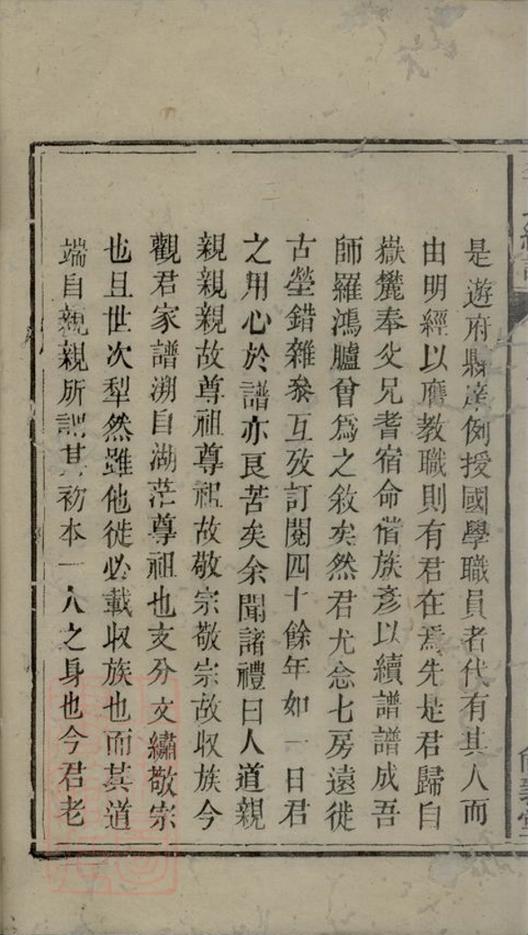 是遊府縣庠例授國學職員者代有其人而
由明經以膺教職則有君在焉先是君歸自
嶽麓奉父兄耆宿命偕族彥以續譜譜成吾
師羅鴻臚曾爲之敘矣然君尤念七房遠徙
古塋錯雜叅互攷訂閱四十餘年如一日君
之用心於譜亦良苦矣余聞諸禮曰人道親
親親親故尊祖尊祖故敬宗敬宗故収族今
觀君家譜溯自湖茫尊祖也支分文繡敬宗
也且世次犁然雖他徙必載収族也而其道
端自親親所謂其初本一人之身也今君老